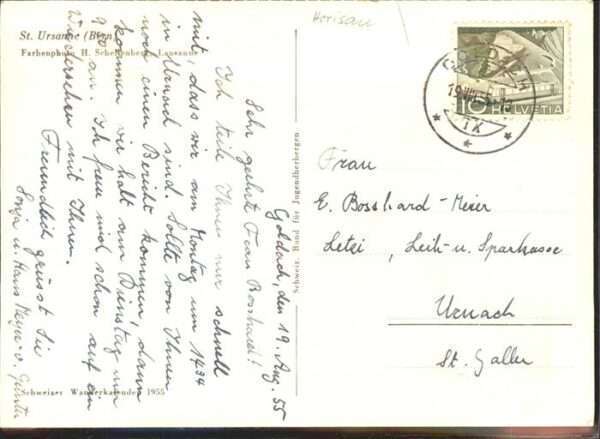 St. Ursanne (Bern)
Farbenphoto H. Schellenberg, Lausanne
Herisau
10 HELVETIA
GOLDACH
19.VIII.55
Goldach, den 19. Aug. 55
Sehr geehrte Frau Bosshard!
Ich teile Ihnen nur schnell
mit, dass wir am Montag um 1434
in Urnach sind. Sollte von Ihnen
noch einen Bericht kommen, dann
kommen wir halt am Dienstag um
an. Ich freue mich schon auf ein
Wiedersehen mit Ihnen.
Freundlich grüsst Sie
Sonja u. Hans Meyer-v.
Schweizer Wanderkalender 1955
Schweiz. Bund für Jugendherbergen
Frau
E. Bosshard-Meier
Letzi, Leih-u. Sparkasse
Urnach
St. Gallen